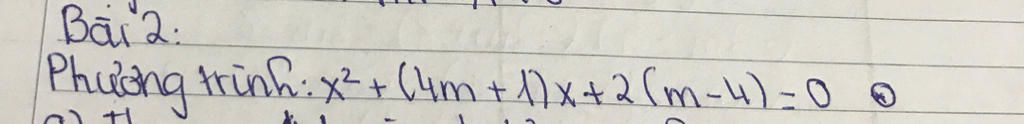 Bài 2:
Phương trình: x² + (4m + 1)x + 2(m - 4) = 0